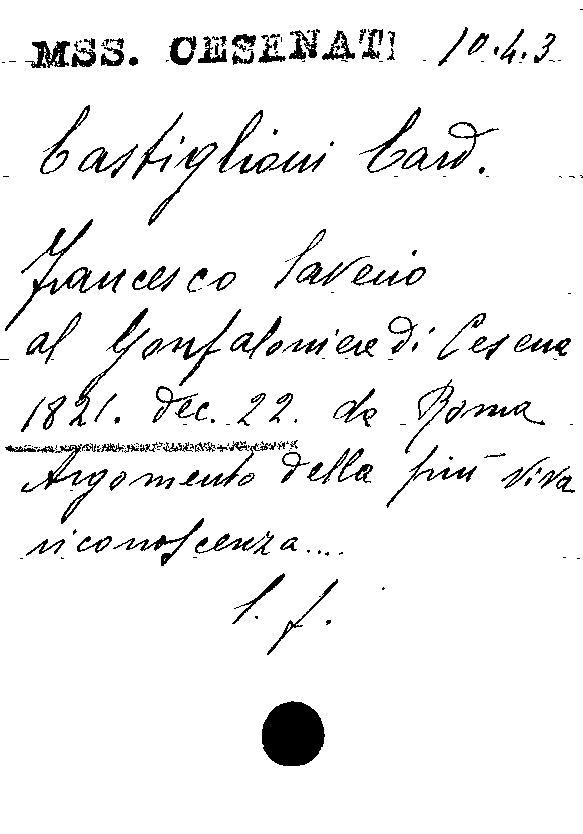 MSS. CESENATI 10.4.3
Castiglioni Card.
Francesco Saverio
al Gonfaloniere di Cesena
1821. dec. 22. da Roma
Argomento della più viva
riconoscenza....
l. f.